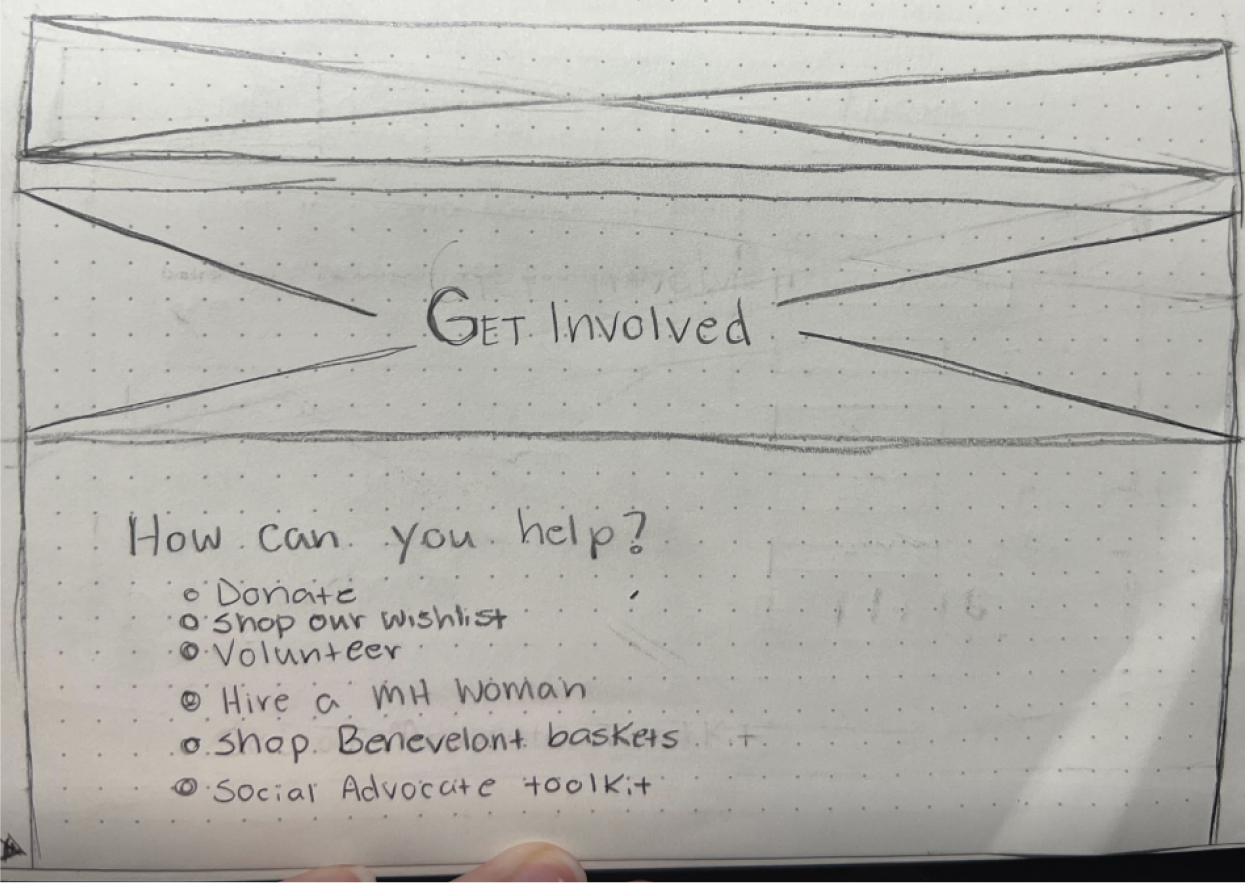 GET Involved
How can you help?
Donate
Shop our wishlist
Volunteer
Hire a MH Woman
Shop Benevelont baskets
Social Advocate toolkit